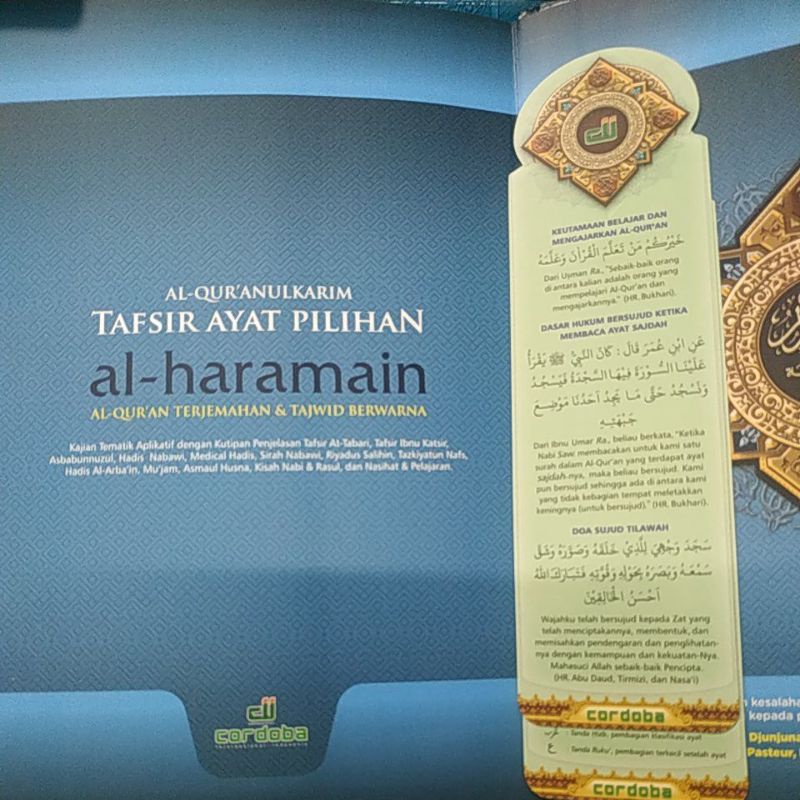 AL-QUR'ANULKARIM
TAFSIR AYAT PILIHAN
al-haramain
AL-QUR'AN TERJEMAHAN & TAJWID BERWARNA
Kajian Tematik Aplikatif dengan Kutipan Penjelasan Tafsir At-Tabari, Tafsir Ibnu Katsir,
Asbabunnuzul, Hadis Nabawi, Medical Hadis, Sirah Nabawi, Riyadus Salihin, Tazkiyatun Nafs,
Hadis Al-Arba'in, Mu'jam, Asmaul Husna, Kisah Nabi & Rasul, dan Nasihat & Pelajaran.
cordoba
international - indonesia
KEUTAMAAN BELAJAR DAN
MENGAJARKAN AL-QUR'AN
خَيْرُكُمْ مَنْ تَعَلَّمَ الْقُرْاٰنَ وَعَلَّمَهُ
Dari Usman Ra., "Sebaik-baik orang
di antara kalian adalah orang yang
mempelajari Al-Qur'an dan
mengajarkannya." (HR. Bukhari).
DASAR HUKUM BERSUJUD KETIKA
MEMBACA AYAT SAJDAH
عَنِ ابْنِ عُمَرَ قَالَ : كَانَ النَّبِيُّ ﷺ يَقْرَأُ
عَلَيْنَا السُّوْرَةَ فِيْهَا السَّجْدَةُ فَيَسْجُدُ
وَنَسْجُدُ حَتَّى مَا يَجِدُ اَحَدُنَا مَوْضِعَ
جَبْهَتِهِ
Dari Ibnu Umar Ra., beliau berkata, "Ketika
Nabi Saw. membacakan untuk kami satu
surah dalam Al-Qur'an yang terdapat ayat
sajdah-nya, maka beliau bersujud. Kami
pun bersujud sehingga ada di antara kami
yang tidak kebagian tempat meletakkan
keningnya (untuk bersujud)." (HR. Bukhari).
DOA SUJUD TILAWAH
سَجَدَ وَجْهِيَ لِلَّذِيْ خَلَقَهُ وَصَوَّرَهُ وَشَقَّ
سَمْعَهُ وَبَصَرَهُ بِحَوْلِهِ وَقُوَّتِهِ فَتَبَارَكَ اللهُ
اَحْسَنُ الْخَالِقِيْنَ
Wajahku telah bersujud kepada Zat yang
telah menciptakannya, membentuk, dan
memisahkan pendengaran dan penglihatan-
nya dengan kemampuan dan kekuatan-Nya.
Mahasuci Allah sebaik-baik Pencipta.
(HR. Abu Daud, Tirmizi, dan Nasa'i)
cordoba
: Tanda Hizb, pembagian klasifikasi ayat
ع : Tanda Ruku', pembagian terkecil setelah ayat
cordoba
kesalaha
kepada p
Djunjuna
Pasteur,